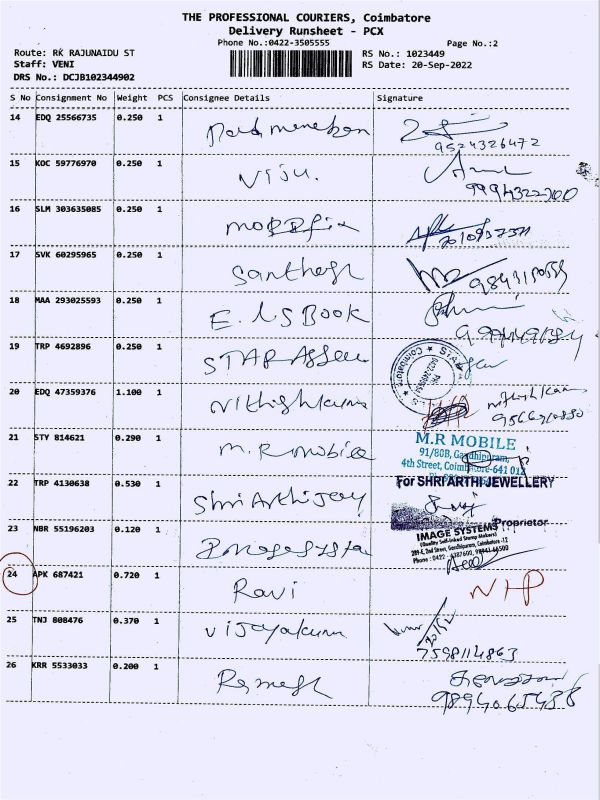 THE PROFESSIONAL COURIERS, Coimbatore
Delivery Runsheet - PCX
Phone No.:0422-3505555 Page No.:2
Route: RK RAJUNAIDU ST RS No.: 1023449
Staff: VENI RS Date: 20-Sep-2022
DRS No.: DCJB102344902
S No Consignment No Weight PCS Consignee Details Signature
14 EDQ 25566735 0.250 1
9524326472
15 KOC 59776970 0.250 1 Viju.
16 SLM 303635085 0.250 1
17 SVK 60295965 0.250 1 Santhosh
18 MAA 293025593 0.250 1 E. LS Book
19 TRP 4692896 0.250 1 STAR
20 EDQ 47359376 1.100 1 Nithishkumar
21 STY 814621 0.290 1 M.R mobile
M.R MOBILE
91/80B, Gandhipuram,
4th Street, Coimbatore-641 012
For SHRI ARTHI JEWELLERY
22 TRP 4130638 0.530 1 Shri Arthi
Proprietor
23 NBR 55196203 0.120 1 Image System
IMAGE SYSTEMS
(Quality Self-Inked Stamp Makers)
289-E, 2nd Street, Gandhipuram, Coimbatore -12
24 APK 687421 0.720 1 Ravi NIP
25 TNJ 808476 0.370 1 Vijayakumar
7598114863
26 KRR 5533033 0.200 1 Ramesh
9894065438